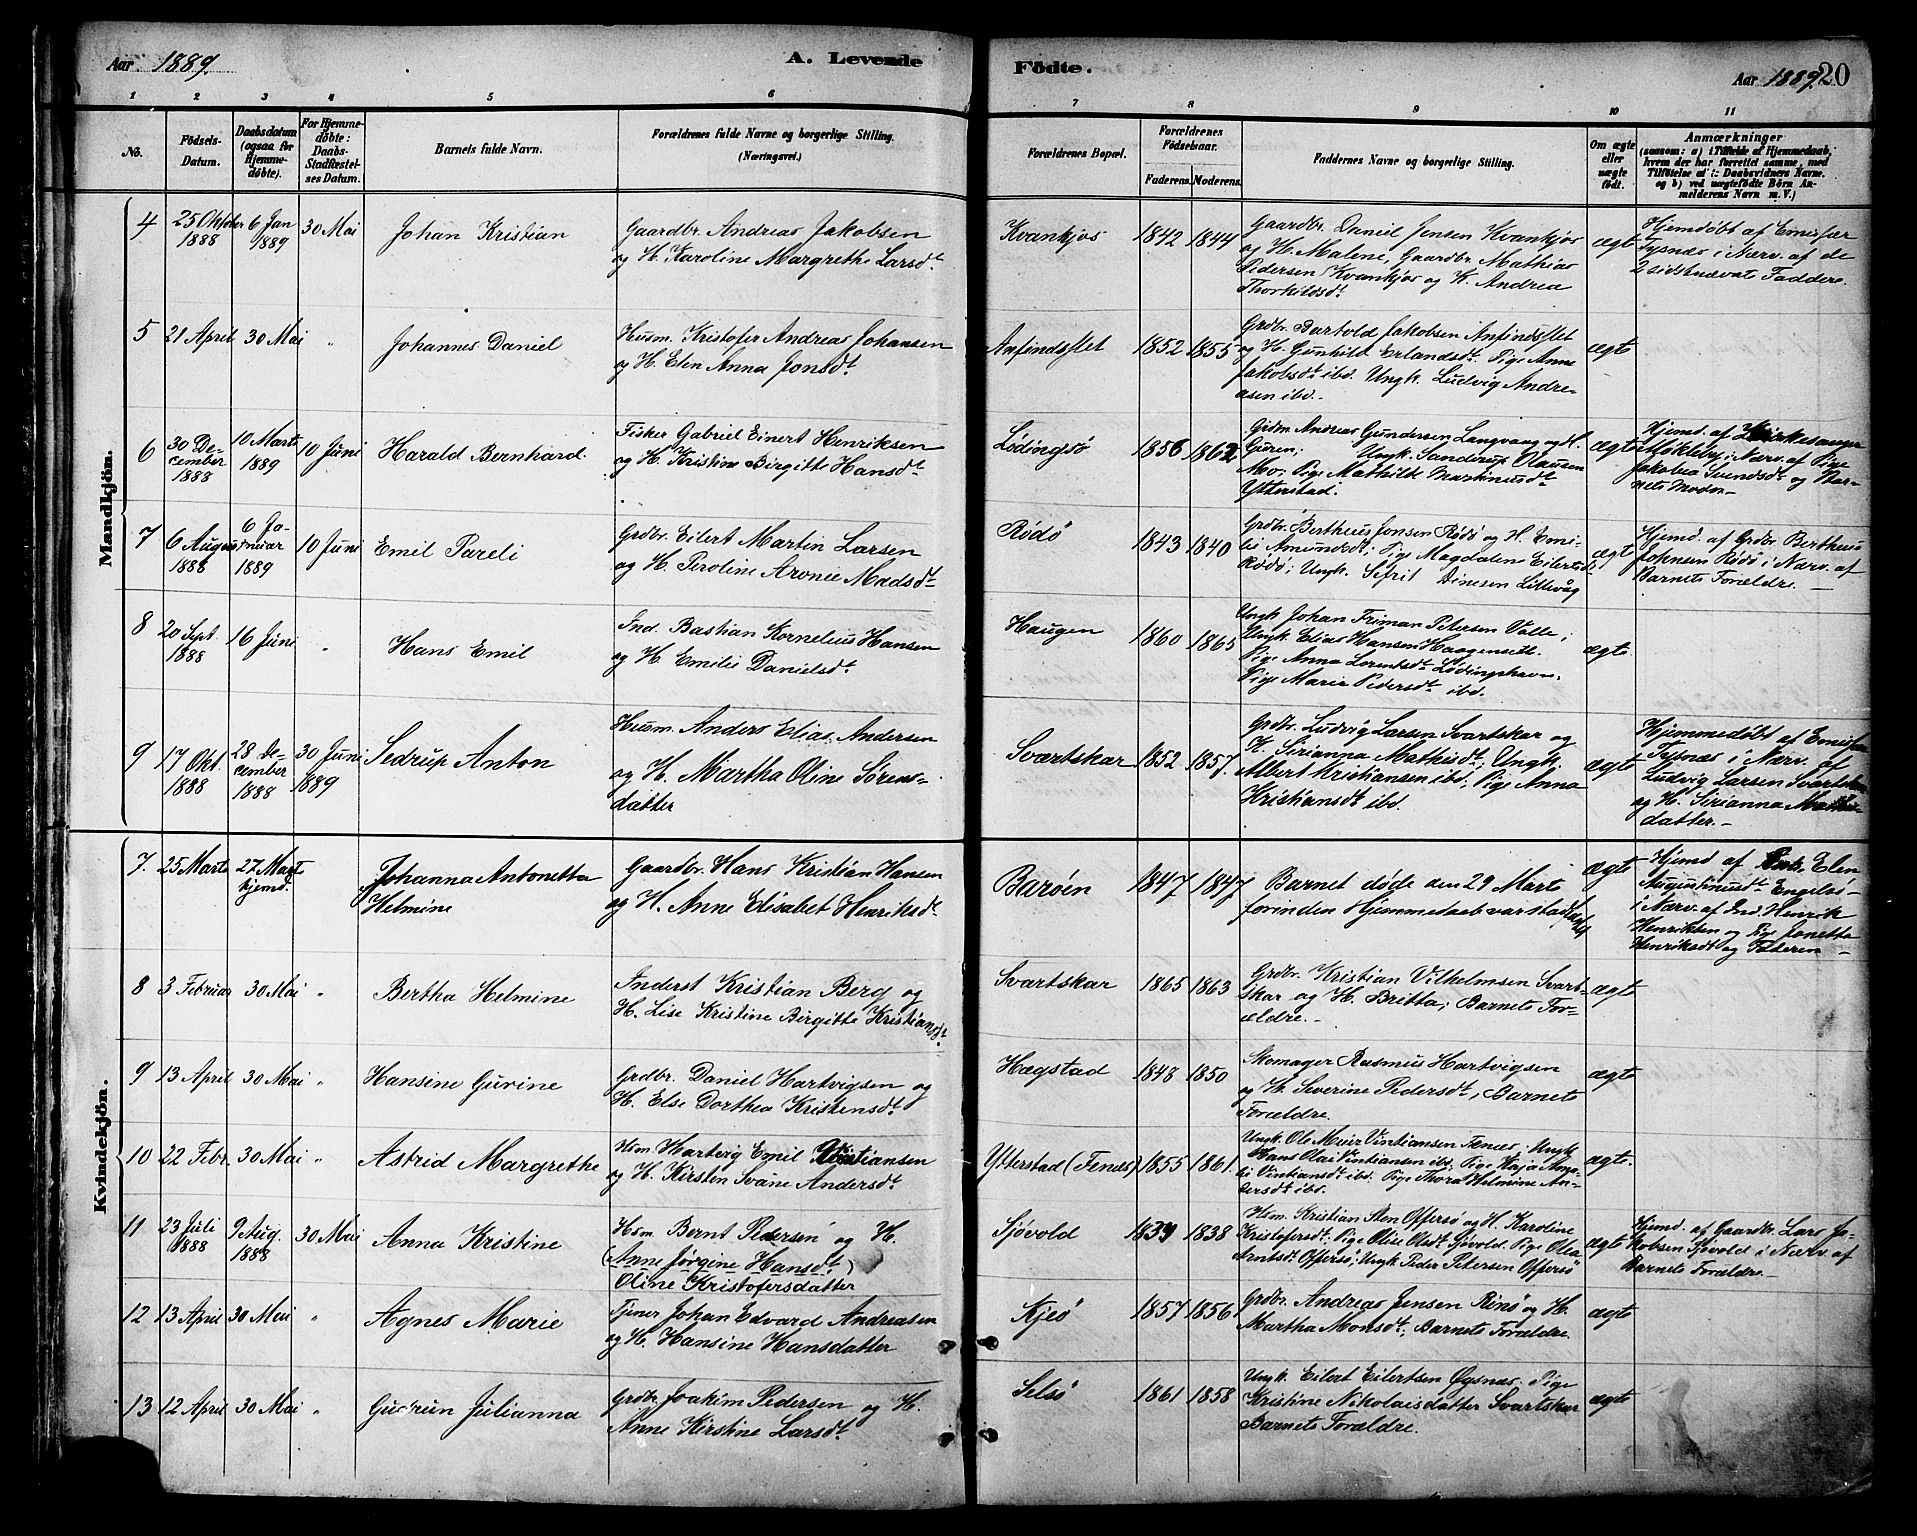 Aar 1889.
A. Levende
Födte.
Aar 1889.
20
1 2 3 4 5 6
7 8 9 10 11
No.
Födsels-
Datum.
Daabsdatum
(ogsaa for
Hjemme-
döbte).
For Hjemme-
döbte:
Daabs-
Stadfæstel-
ses Datum.
Barnets fulde Navn.
Forældrenes fulde Navne og borgerlige Stilling.
(Næringsvei.)
Forældrenes Bopæl.
Forældrenes
Födselsaar.
Faderens. Moderens.
Faddernes Navne og borgerlige Stilling.
Om ægte
eller
uægte
födt.
Anmærkninger
(saasom: a) i Tilfælde af Hjemmedaab,
hvem der har forrettet samme, med
Tilföielse af i: Daabsvidners Navne,
og b) ved uægtefödte Börn An-
melderens Navn m. V.)
Mandkjön.
4
25 Oktober
1888
6 Jan
1889
30 Mai
Johan Kristian
Gaardbr. Andreas Jakobsen
og H. Karoline Margrethe Larsdt.
Kvankjos
1842 1844
Gaardbr. Daniel Jensen Kvankjos
og H. Malene, Gaardbr. Mathias
Pedersen Kvankjos og K. Andrea
Thorkildsdt.
ægte
Hjemdøbt af Emisær
Tysnæs i Nærv. af de
2 sidstnævnte Faddere.
5
21 April
30 Mai
"
Johannes Daniel
Husm. Kristofer Andreas Johansen
og H. Elen Anna Jonsdt.
Anfindslet
1852 1855
Grdbr. Bartold Jakobsen Anfindslet
og H. Gunhild Erlandsdt. Pige Anne
Jakobsdt. ibd. Ungk. Ludvig Andre-
asen ibd.
ægte
6
30 De-
cember
1888
10 Marts
1889
10 Juni
Harald Bernhard
Fisker Gabriel Einert Henriksen
og H. Kristine Birgitte Hansdt.
Lödingsö
1856 1862
Grdm. Andreas Gundersen Langvang og H.
Guren; Ungk. Sanderup Olausen
Mo; Pige Mathilde Martinusdt.
Ytterstad.
ægte
Hjemd. af Kirkesanger
Møkleby i Nærv. af Pige
Jakobea Svendsdt. og Bar-
nets Moder.
7
6 August
1888
6 Ja-
nuar
1889
10 Juni
Emil Pareli
Grdbr. Eilert Martin Larsen
og H. Peroline Aronie Madsdt.
Rödö
1843 1840
Grdbr. Bertheus Jonsen Rödö og H. Emi-
lie Amundsdt; Pige Magdalene Eilertsdt.
Rödö; Ungk. Sifrit Dinesen Littevåg
ægte
Hjemd. af Grdbr. Bertheus
Johnsen Rödö i Nærv. af
Barnets Forældre. –
8
20 Sept.
1888
16 Juni
"
Hans Emil
Ind. Bastian Kornelius Hansen
og H. Emilie Danielsdt.
Haugen
1860 1865
Ungk. Johan Friman Petersen Valle;
Ungk. Elias Hansen Haagensett.
Pige Anna Lorentsdt. Lödingshavn.
Pige Marie Pedersdt. ibd.
ægte.
9
17 Okt.
1888
28 De-
cember
1888
30 Juni
1889
Sedrup Anton
Husm. Anders Elias Andersen
og H. Martha Oline Sörens-
datter
Svartskar
1852 1857.
Grdbr. Ludvig Larsen Svartskar og
H. Sirianna Mathisdt; Ungk.
Albert Kristiansen ibd; Pige Anna
Kristiansdt. ibd.
ægte
Hjemmedöbt af Emisær
Tysnæs i Nærv. af
Ludvig Larsen Svartskar
og H. Sirianna Mathis-
datter. –
Kvindekjön.
7.
25 Marts
27 Marts
hjemd.
Johanna Antonetta
Helmine
Gaardbr. Hans Kristian Hansen
og H. Anne Elisabet Henriksdt.
Baröen
1847 1847
Barnet døde den 29 Marts
forinden Hjemmedaab var stadfæstet
ægte
Hjemd af Elen
Augustinusdt Engelöi
i Nærv. af Ind. Henrik
Henriksen og Pige Jonetta
Henriksdt og Faderen –
8
3 Februar
30 Mai
"
Bertha Helmine
Inderst Kristian Berg og
H. Lise Kristine Birgitte Kristiansdt.
Svartskar
1865 1863
Grdbr. Kristian Vilhelmsen Svart-
skar og H. Britta; Barnets For-
ældre. –
ægte
9
13 April
30 Mai
"
Hansine Gurine
Grdbr. Daniel Hartvigsen og
H. Else Dorthea Kristensdt.
Hægstad
1848 1850
Skomager Rasmus Hartvigsen
og H. Severine Pedersdt; Barnets
Forældre.
ægte
10
22 Febr.
30 Mai
"
Astrid Margrethe
Hsm. Hartvig Emil Kristiansen
og H. Kirsten Svane Andersdt.
Ytterstad (Fenes)
1855 1861.
Ungk. Ole Meier Vintiansen Fenes; Ungk
Hans Olai Vintiansen ibd; Pige Kaja Ama-
lie Vintiansdt. ibd. Pige Thora Helmine An-
dersdt. ibd.
ægte.
11
23 Juli
1888
9 Aug.
1888
30 Mai
Anna Kristine
Hsm Bernt Pedersen og H.
(Anne Jørgine Hansdt.)
Oline Kristofersdatter
Sjövold
1839 1838
Hsm. Kristian Sten Offersö og H. Karoline
Kristofersdt. Pige Oline Olsdt. Sjövold. Pige Olea
Arntsdt. Offersö; Ungk. Peder Petersen Offersö
ægte
Hjemd. af Gaardbr. Lars Ja-
kobsen Sjövold i Nærv. af
Barnets Forældre. –
12
13 April
30 Mai
"
Agnes Marie
Tjener Johan Edvard Andreasen
og H. Hansine Hansdatter
Kjeö
1857 1856
Grdbr. Andreas Jensen Rinö og H.
Martha Monsdt; Barnets Forældre.
ægte
13
12 April
30 Mai
"
Gudrun Julianna
Grdbr. Joakim Pedersen og H.
Anne Kirstine Larsdt.
Selsö
1861 1858
Ungk. Eilert Eilertsen Öysnæs; Pige
Kristine Nikolaisdatter Svartskar
Barnets Forældre.
ægte